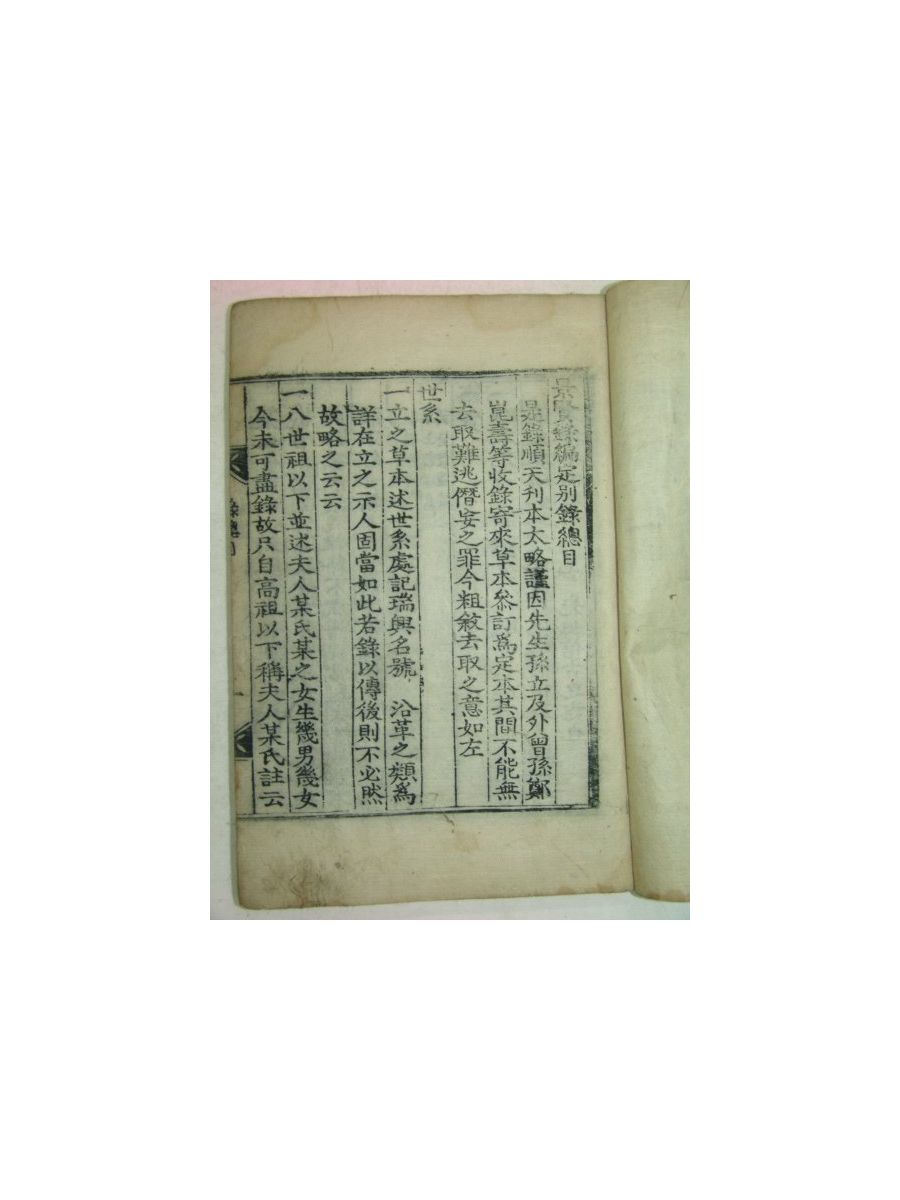 景賢錄編定別錄總目
是錄順天刊本太略謹因先生孫立及外曾孫鄭
崑壽等收錄寄來草本參訂爲定本其間不能無
去取難逃僭妄之罪今粗敘去取之意如左
世系
一立之草本述世系處記瑞興名號 沿革之類爲
詳在立之示人固當如此若錄以傳後則不必然
故略之云云
一八世祖以下並述夫人某氏某之女生幾男幾女
今未可盡錄故只自高祖以下稱夫人某氏註云